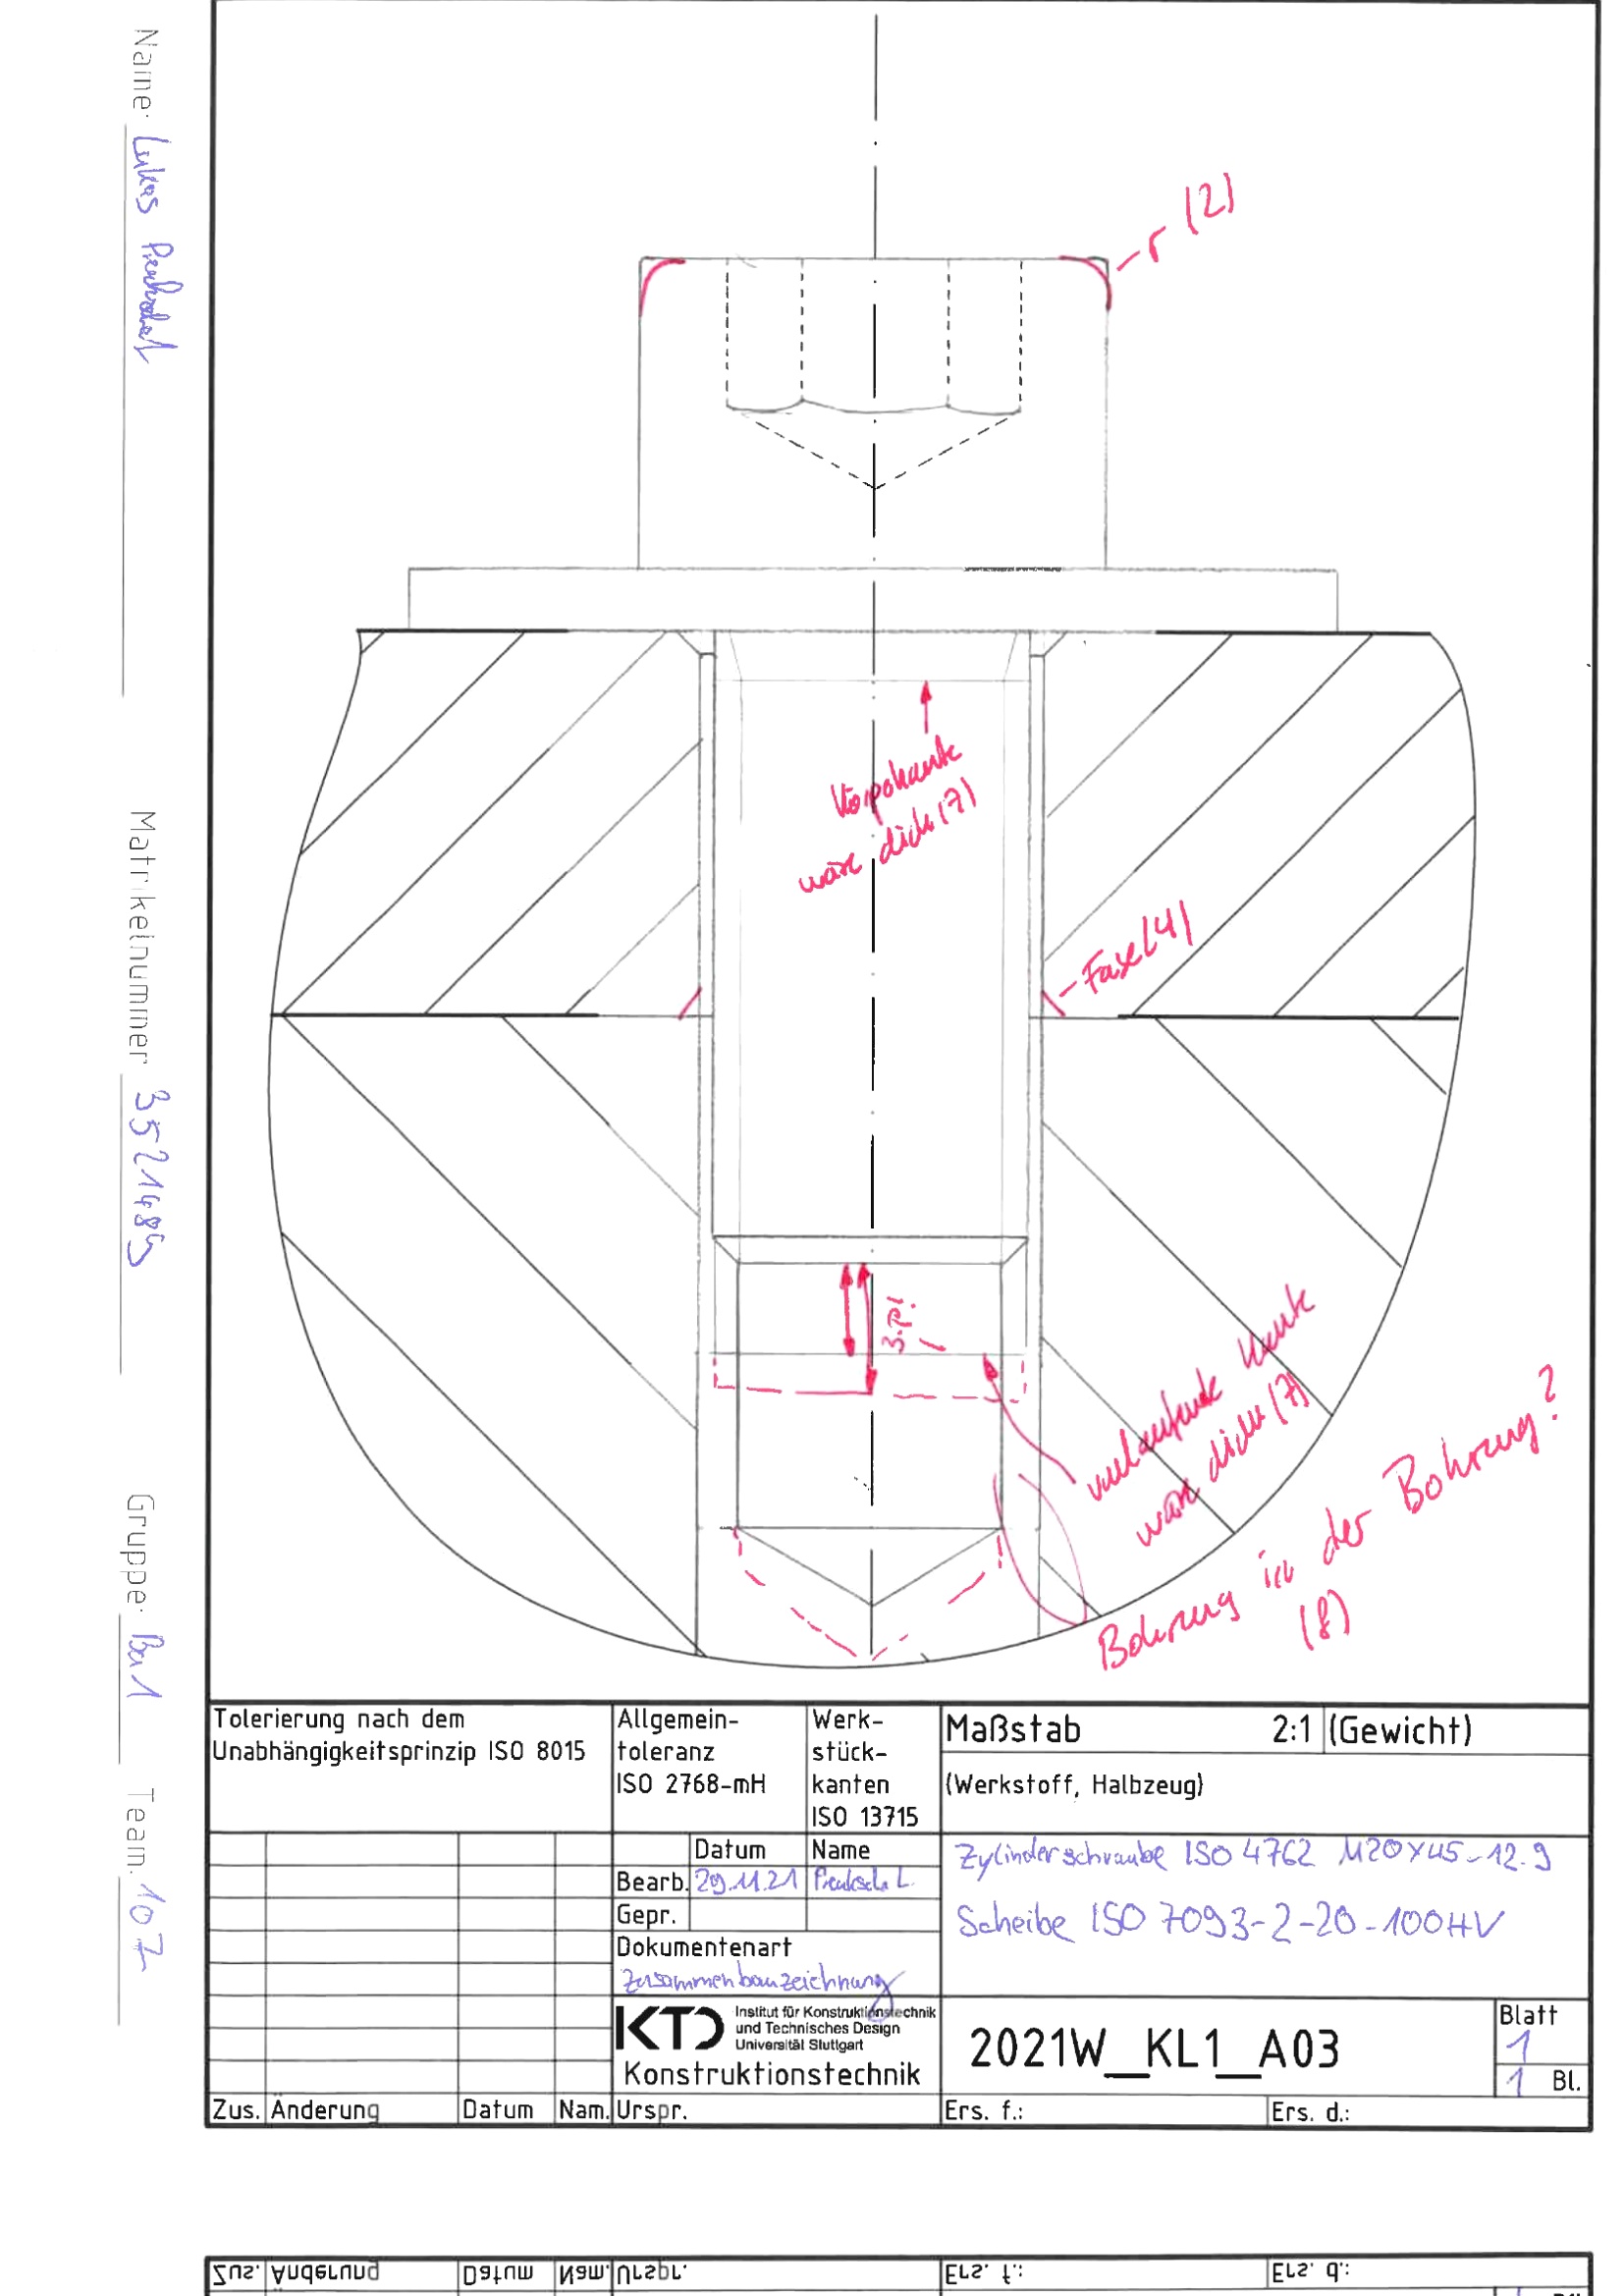 Name: Lukas
Matrikelnummer 3521485
Gruppe: Ba1
Team: 107
-r (2)
wäre dick (7)
-Fase (4)
3.P!
umlaufende Kante
wäre dick (7)
Bohrung in der Bohrung?
(8)
Tolerierung nach dem
Unabhängigkeitsprinzip ISO 8015
Allgemein-
toleranz
ISO 2768-mH
Werk-
stück-
kanten
ISO 13715
Maßstab 2:1 (Gewicht)
(Werkstoff, Halbzeug)
Datum Name
Bearb. 29.11.21 L.
Gepr.
Dokumentenart
Zusammenbauzeichnung
Zylinderschraube ISO 4762 M20x45-12.9
Scheibe ISO 7093-2-20-100HV
KTD Institut für Konstruktionstechnik
und Technisches Design
Universität Stuttgart
Konstruktionstechnik
2021W_KL1_A03
Blatt
1
1 Bl.
Zus. Änderung Datum Nam. Urspr. Ers. f.: Ers. d.:
Zus. Änderung Datum Nam. Urspr. Ers. f.: Ers. d.: